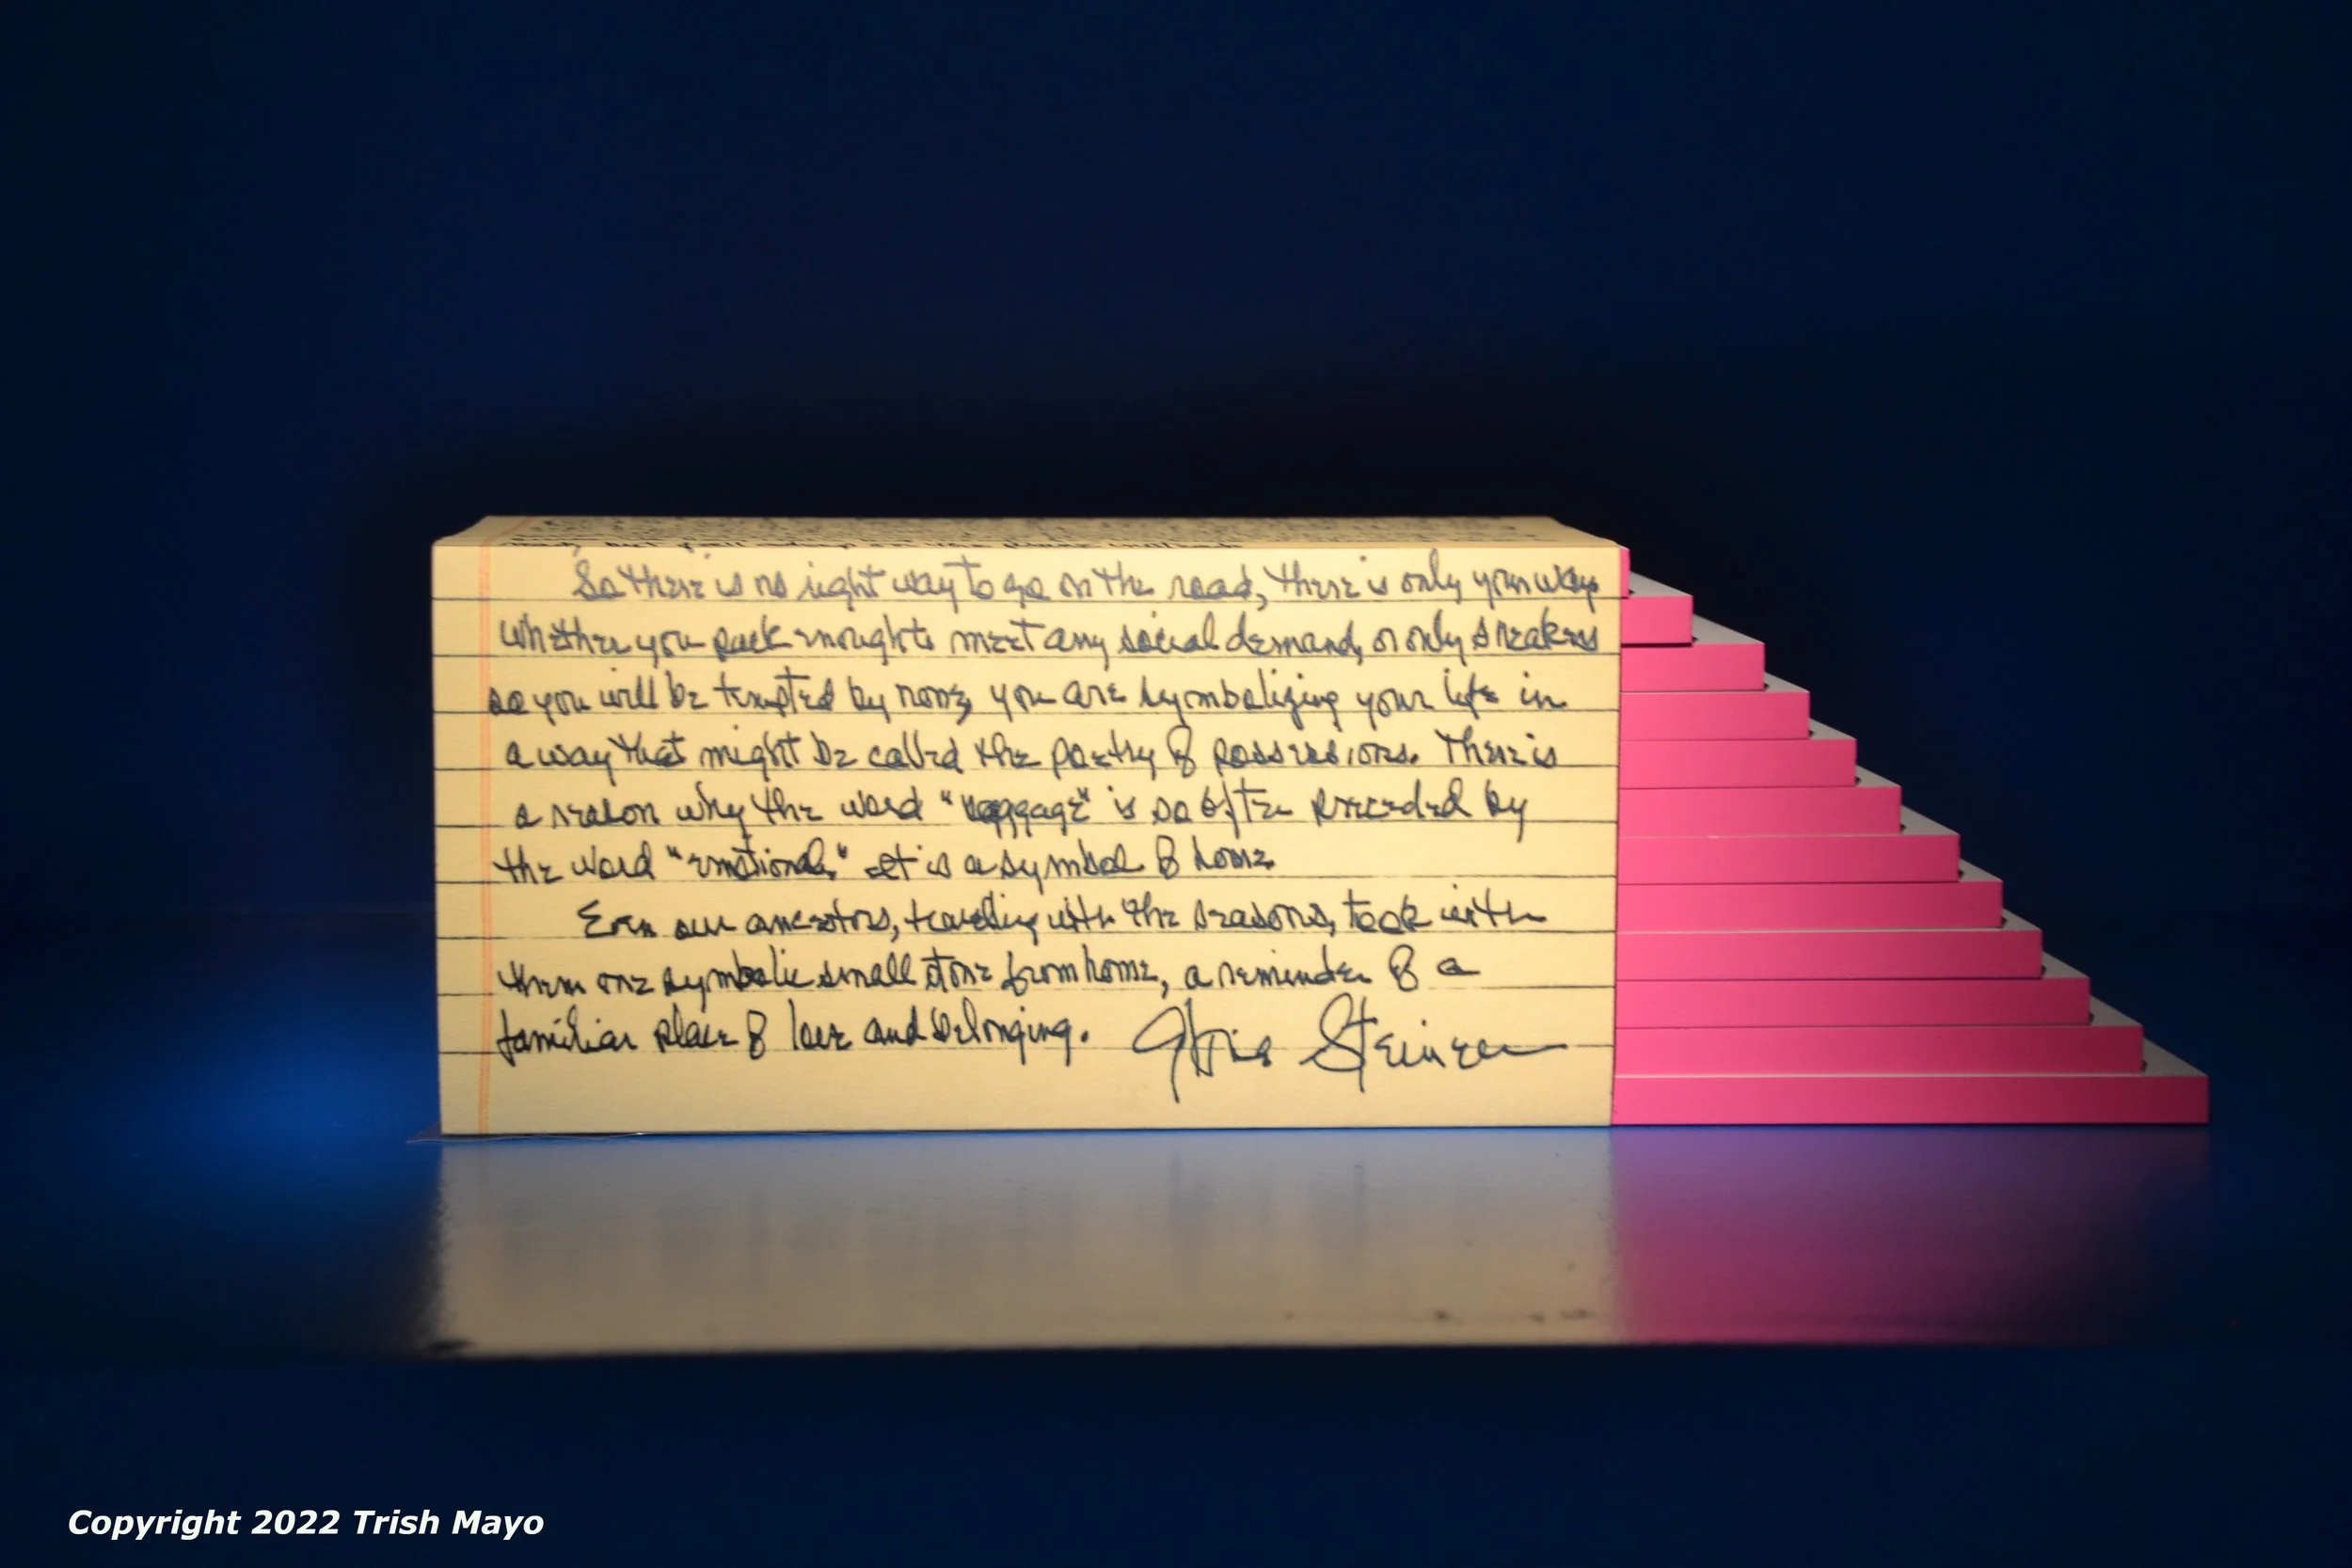 So there is no right way to go on the road, there is only your way
whether you pack enough to meet any social demand, or only sneakers
so you will be tempted by none, you are symbolizing your life in
a way that might be called the poetry of possessions. There is
a reason why the word "baggage" is so often preceded by
the word "emotional." It is a symbol of home.
Even our ancestors, traveling with the seasons, took with
them one symbolic small stone from home, a reminder of a
familiar place of love and belonging. Gloria Steinem
Copyright 2022 Trish Mayo